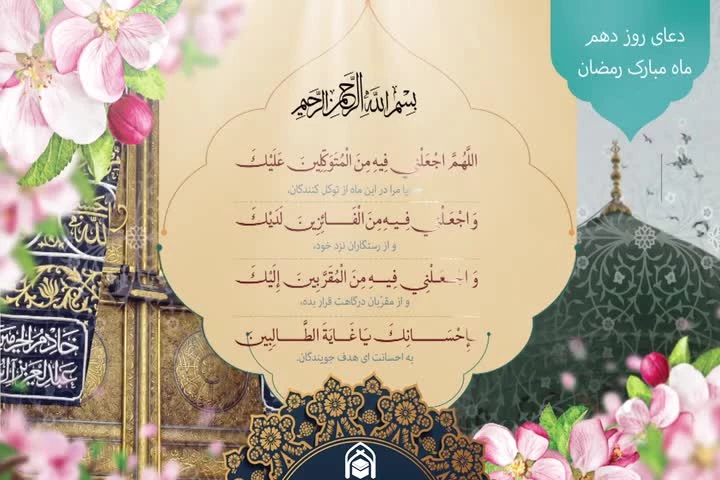 دعای روز دهم
ماه مبارک رمضان
بِسْمِ اللَّهِ الرَّحْمَنِ الرَّحِيمِ
اللَّهُمَّ اجْعَلْنِي فِيهِ مِنَ الْمُتَوَكِّلِينَ عَلَيْكَ
یا مرا در این ماه از توکل کنندگان،
وَ اجْعَلْنِي فِيهِ مِنَ الْفَائِزِينَ لَدَيْكَ
و از رستگاران نزد خود،
وَ اجْعَلْنِي فِيهِ مِنَ الْمُقَرَّبِينَ إِلَيْكَ
و از مقرّبان درگاهت قرار بده،
بِإِحْسَانِكَ يَا غَايَةَ الطَّالِبِينَ
به احسانت ای هدف جویندگان.
الله
خادم الحرمين